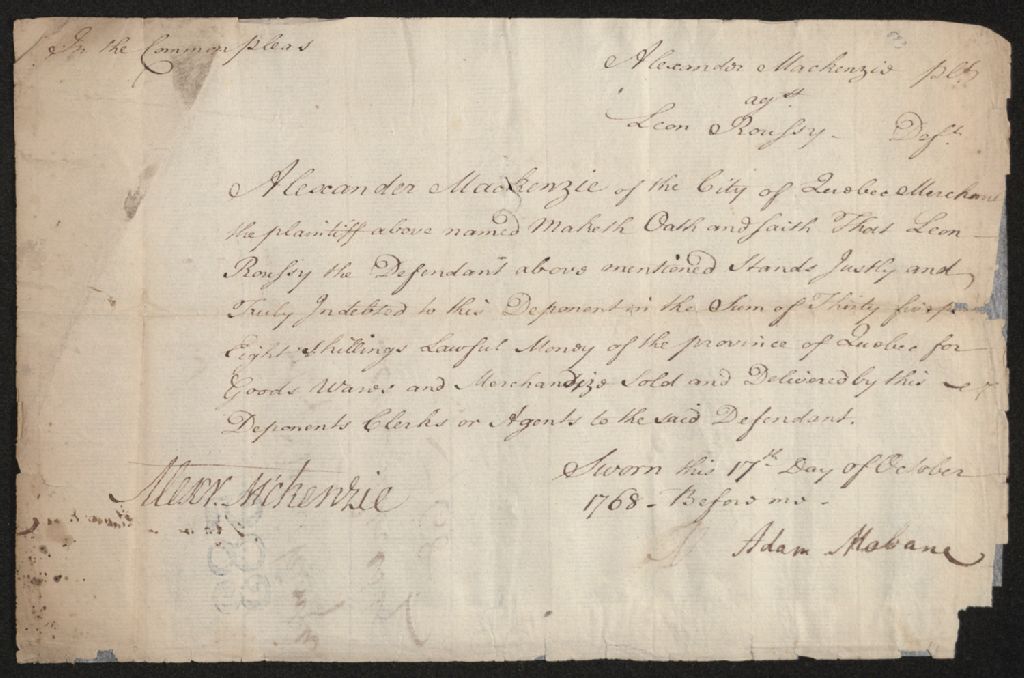 In the Common pleas
Alexander Mackenzie plt
agst
Leon Roussy - Deft
Alexander Mackenzie of the City of Quebec Merchant
the plaintiff above named Maketh Oath and saith That Leon
Roussy the Defendant above mentioned Stands Justly and
Truly Indebted to this Deponent in the Sum of Thirty five
Eight Shillings Lawful Money of the province of Quebec for
Goods Wares and Merchandize Sold and Delivered by this
Deponents Clerks or Agents to the said Defendant.
Sworn this 17th Day of October
1768 - Before me -
Alexr. Mckenzie
Adam Mabane